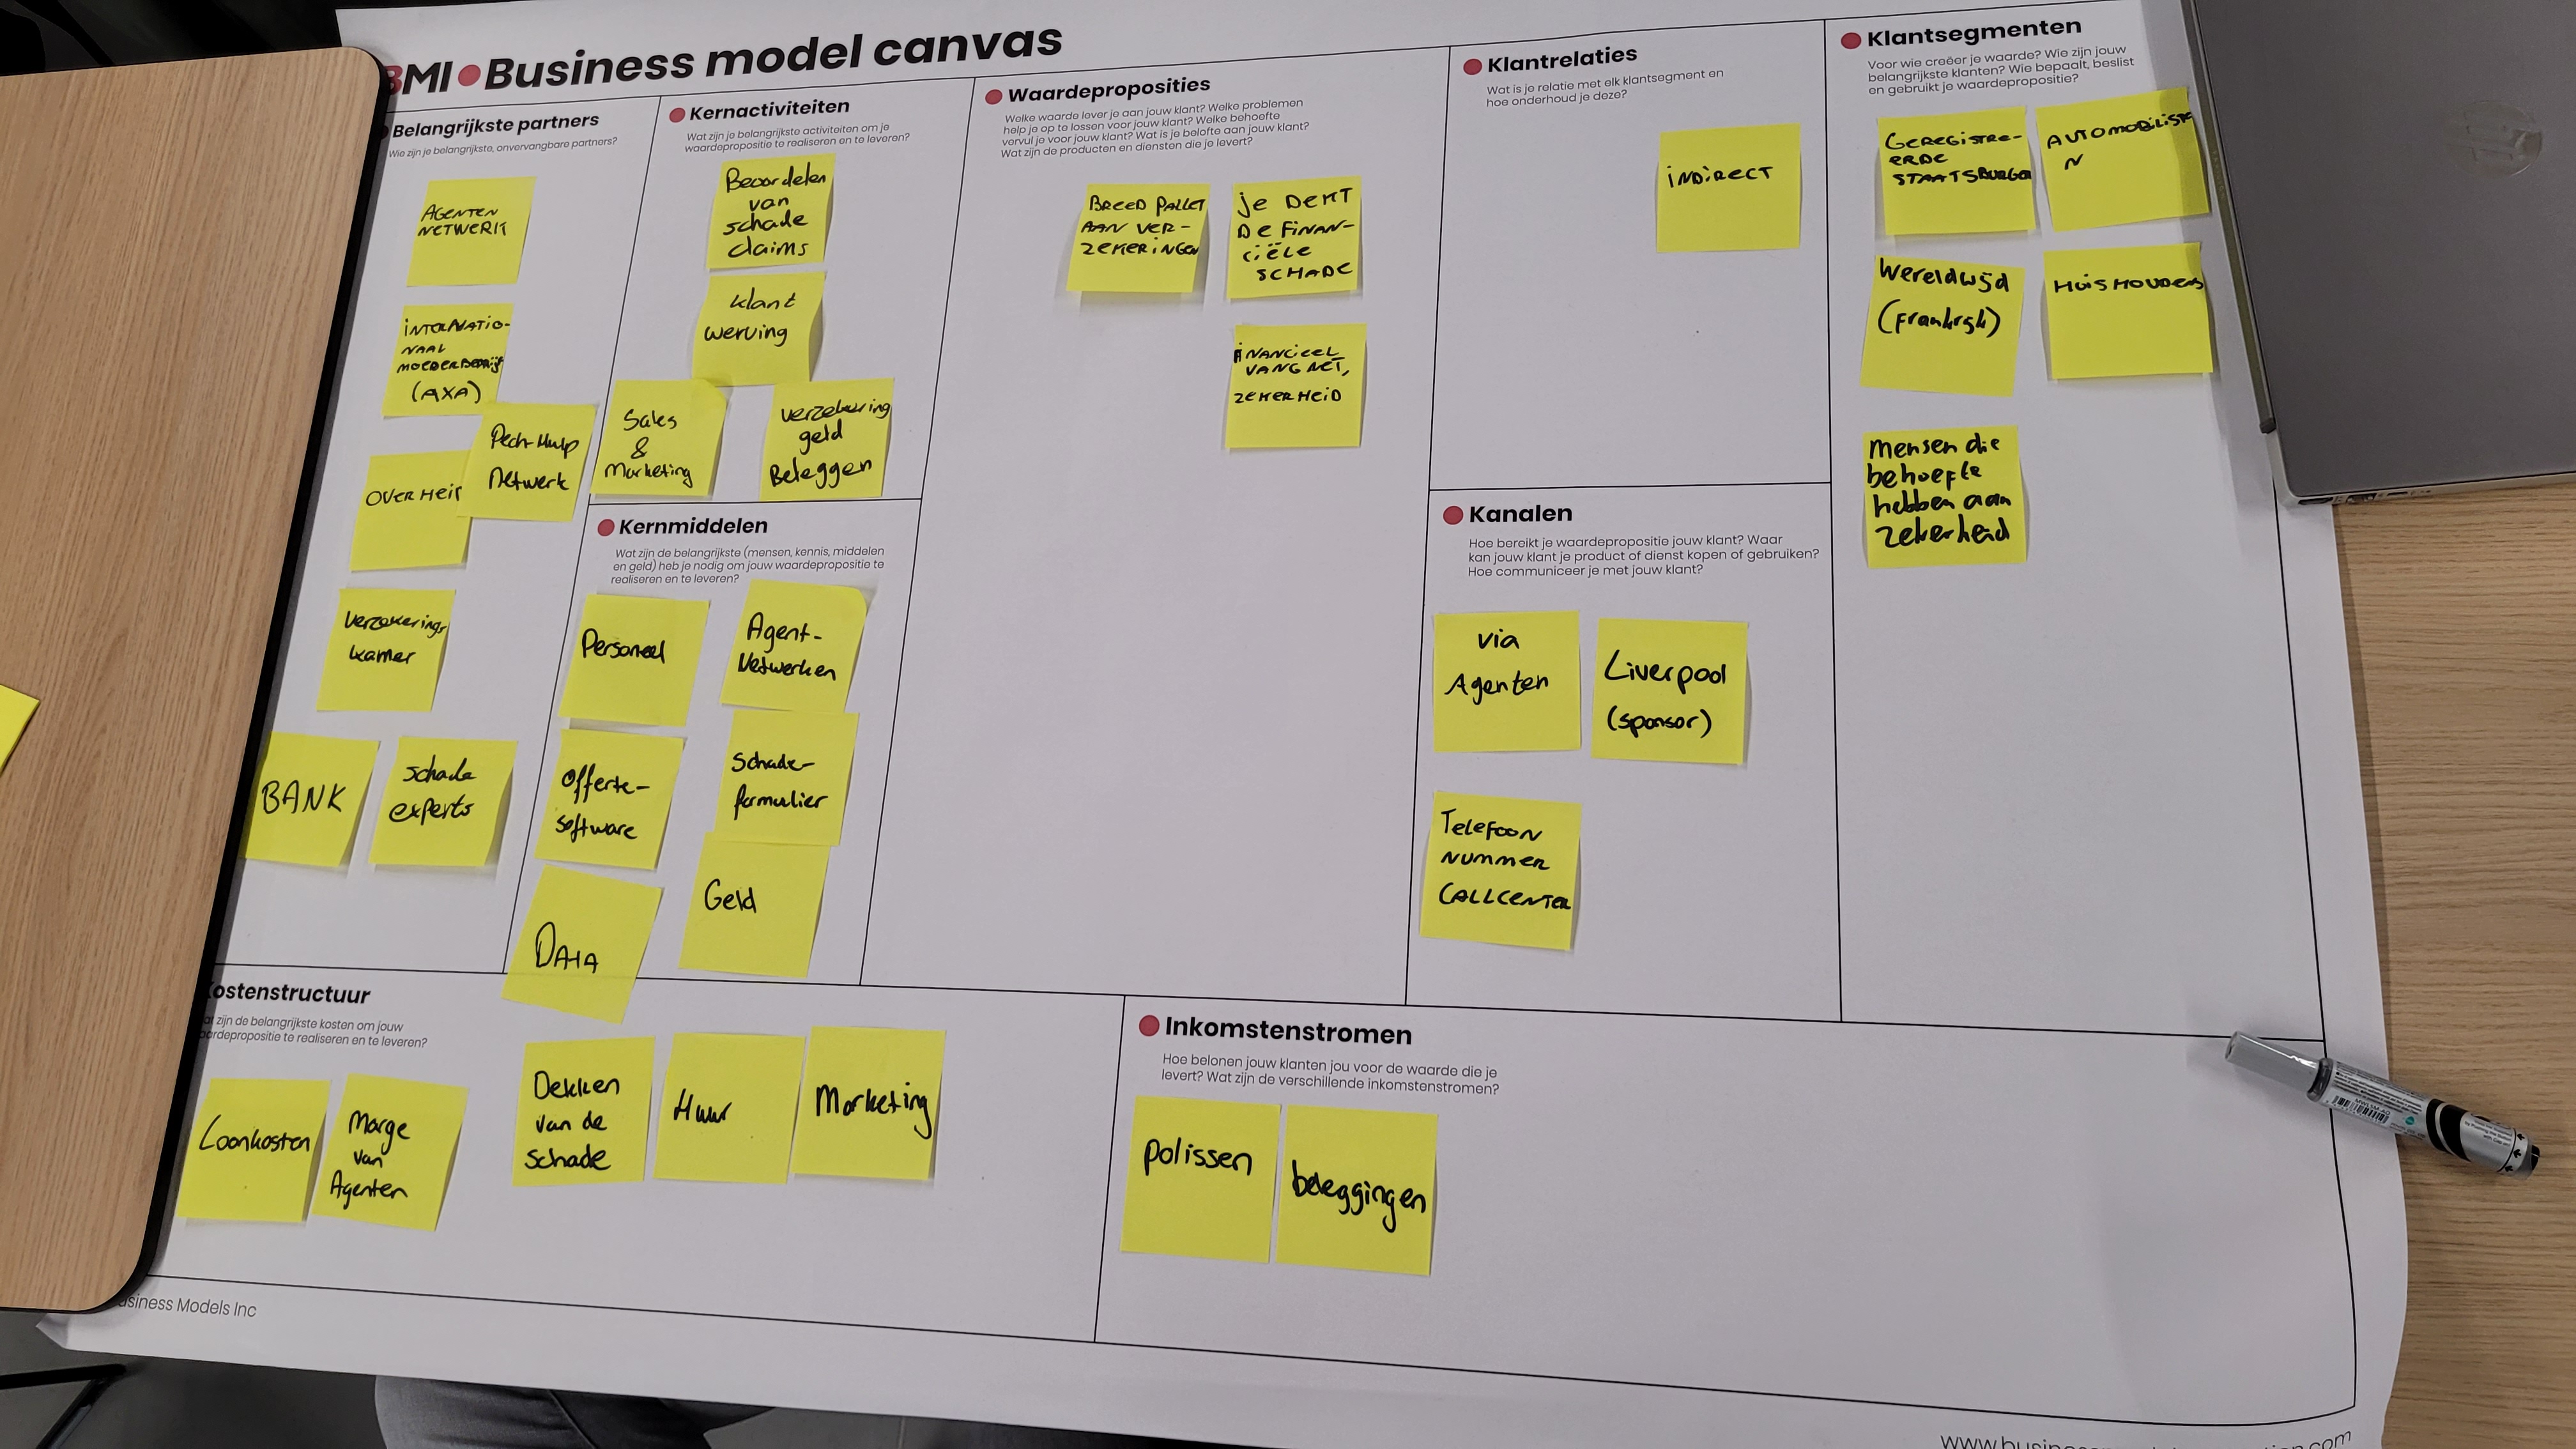 BMI Business model canvas
Belangrijkste partners
Wie zijn je belangrijkste, onvervangbare partners?
AGENTEN
NETWERK
INTERNATIO-
NAAL
MOEDERBEDRIJF
(AXA)
OVERHEID
Pech-Hulp
Netwerk
Verzekerings
kamer
BANK
Schade
experts
Kernactiviteiten
Wat zijn je belangrijkste activiteiten om je
waardepropositie te realiseren en te leveren?
Beoordelen
van
schade
claims
klant
werving
Sales
&
Marketing
verzekering
geld
Beleggen
Kernmiddelen
Wat zijn de belangrijkste (mensen, kennis, middelen
en geld) heb je nodig om jouw waardepropositie te
realiseren en te leveren?
Personeel
Agent-
Netwerken
Offerte-
software
Schade-
formulier
DATA
Geld
Waardeproposities
Welke waarde lever je aan jouw klant? Welke problemen
help je op te lossen voor jouw klant? Welke behoefte
vervul je voor jouw klant? Wat is je belofte aan jouw klant?
Wat zijn de producten en diensten die je levert?
BREED PALLET
AAN VER-
ZEKERINGEN
je DEKT
DE FINAN-
CIËLE
SCHADE
FINANCIEEL
VANGNET,
ZEKERHEID
Klantrelaties
Wat is je relatie met elk klantsegment en
hoe onderhoud je deze?
INDIRECT
Kanalen
Hoe bereikt je waardepropositie jouw klant? Waar
kan jouw klant je product of dienst kopen of gebruiken?
Hoe communiceer je met jouw klant?
via
Agenten
Liverpool
(sponsor)
Telefoon
nummer
CALLCENTER
Klantsegmenten
Voor wie creëer je waarde? Wie zijn jouw
belangrijkste klanten? Wie bepaalt, beslist
en gebruikt je waardepropositie?
GEREGISTRE-
ERDE
STAATSBURGER
AUTOMOBILISTE
N
Wereldwijd
(Frankrijk)
HUISHOUDENS
Mensen die
behoefte
hebben aan
zekerheid
Kostenstructuur
Wat zijn de belangrijkste kosten om jouw
waardepropositie te realiseren en te leveren?
Loonkosten
Marge
van
Agenten
Dekken
van de
schade
Huur
Marketing
Inkomstenstromen
Hoe belonen jouw klanten jou voor de waarde die je
levert? Wat zijn de verschillende inkomstenstromen?
polissen
beleggingen
Business Models Inc